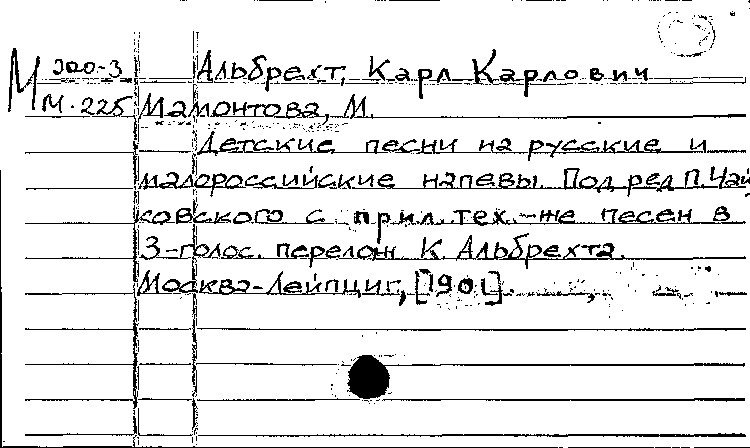 М 320-3 Альбрехт, Карл Карлович
М.225 Мамонтова, М.
Детские песни на русские и
малороссийские напевы. Под ред П. Чай
ковского с прил. тех-же песен в
3-голос. перелож К. Альбрехта.
Москва-Лейпциг, [1901].